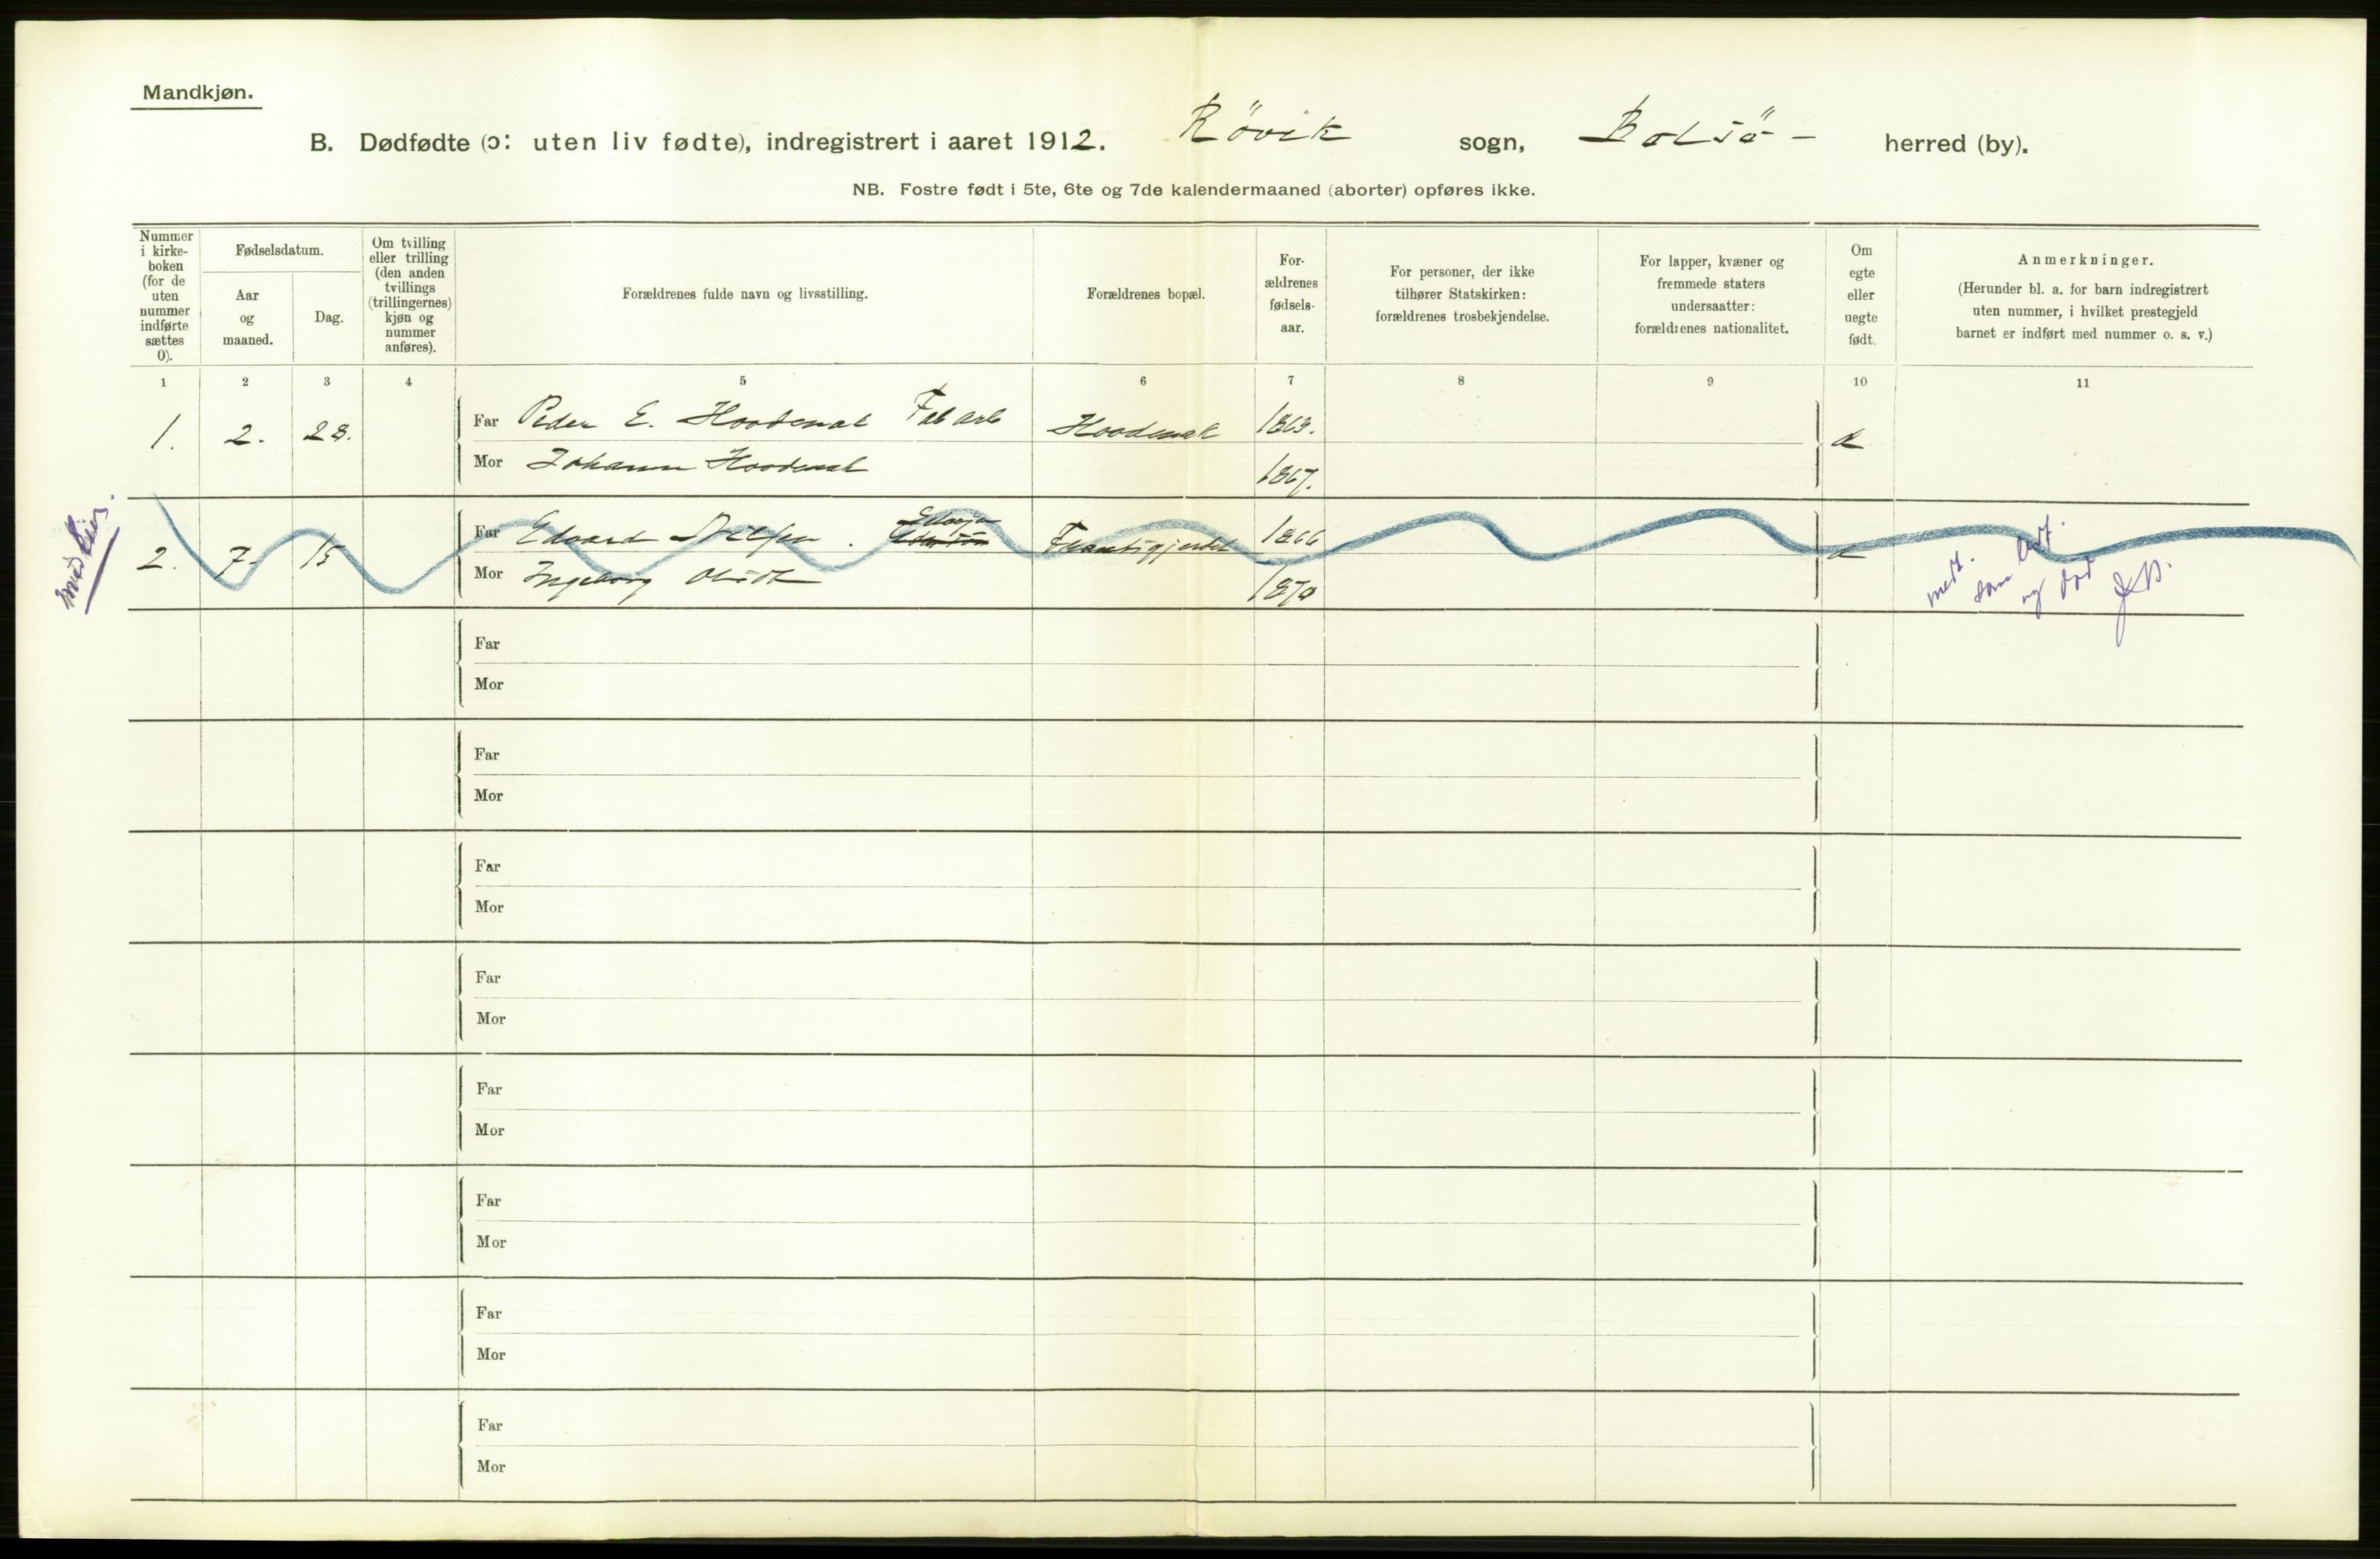 Mandkjøn.
B. Dødfødte (ɔ: uten liv fødte), indregistrert i aaret 1912. Rövik sogn, Bolsö- herred (by).
NB. Fostre født i 5te, 6te og 7de kalendermaaned (aborter) opføres ikke.
Nummer
i kirke-
boken
(for de
uten
nummer
indførte
sættes
0).
Fødselsdatum.
Aar
og
maaned.
Dag.
Om tvilling
eller trilling
(den anden
tvillings
(trillingernes)
kjøn og
nummer
anføres).
Forældrenes fulde navn og livsstilling.
Forældrenes bopæl.
For-
ældrenes
fødsels-
aar.
For personer, der ikke
tilhører Statskirken:
forældrenes trosbekjendelse.
For lapper, kvæner og
fremmede staters
undersaatter:
forældrenes nationalitet.
Om
egte
eller
uegte
født.
Anmerkninger.
(Herunder bl. a. for barn indregistrert
uten nummer, i hvilket prestegjeld
barnet er indført med nummer o. s. v.)
1 2 3 4 5 6 7 8 9 10 11
1. 2. 28. Far Peder E. Hoodenak Fab arb Hoodenak 1863.
Mor Johanne Hoodenak 1867.
2. 7. 15 Far Edvard 1866
Mor Ingeborg 1870
medt. som levf.
og død
Far
Mor
Far
Mor
Far
Mor
Far
Mor
Far
Mor
Far
Mor
Far
Mor
Far
Mor